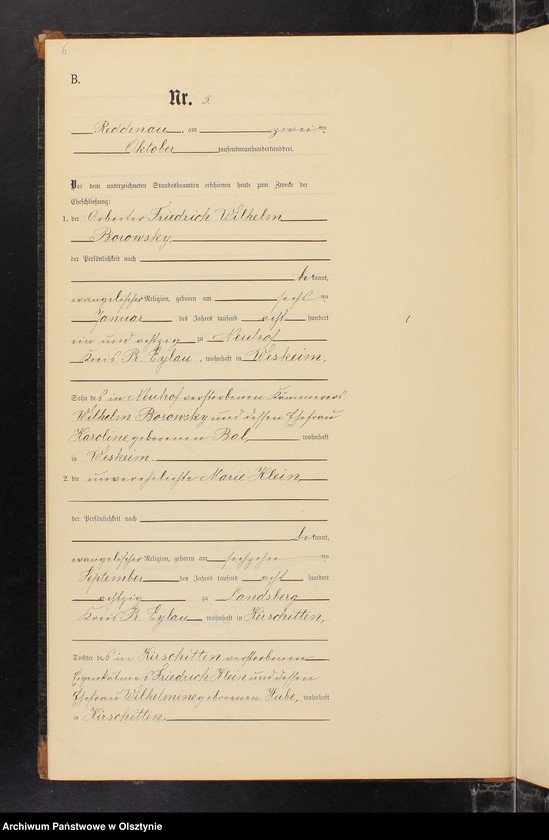 6
B.
Nr. 3.
Reddenau, am zwei ten
Oktober tausendneunhundertunddrei.
Vor dem unterzeichneten Standesbeamten erschienen heute zum Zwecke der
Eheschließung:
1. der Arbeiter Friedrich Wilhelm
Borowsky
der Persönlichkeit nach
bekannt,
evangelischer Religion, geboren am sechs ten
Januar des Jahres tausend acht hundert
ein und achtzig zu Neuhof
Kreis Pr. Eylau, wohnhaft in Weskeim,
Sohn des in Neuhof verstorbenen Kämmerers
Wilhelm Borowsky und dessen Ehefrau
Karoline geborenen Bal, wohnhaft
in Weskeim.
2. die unverehelichte Marie Klein,
der Persönlichkeit nach
bekannt,
evangelischer Religion, geboren am sechzehn ten
September des Jahres tausend acht hundert
achtzig zu Landsberg
Kreis Pr. Eylau wohnhaft in Kirschitten,
Tochter des in Kirschitten verstorbenen
Friedrich Klein und dessen
Ehefrau Wilhelmine geborenen Kube, wohnhaft
in Kirschitten.
Archiwum Państwowe w Olsztynie